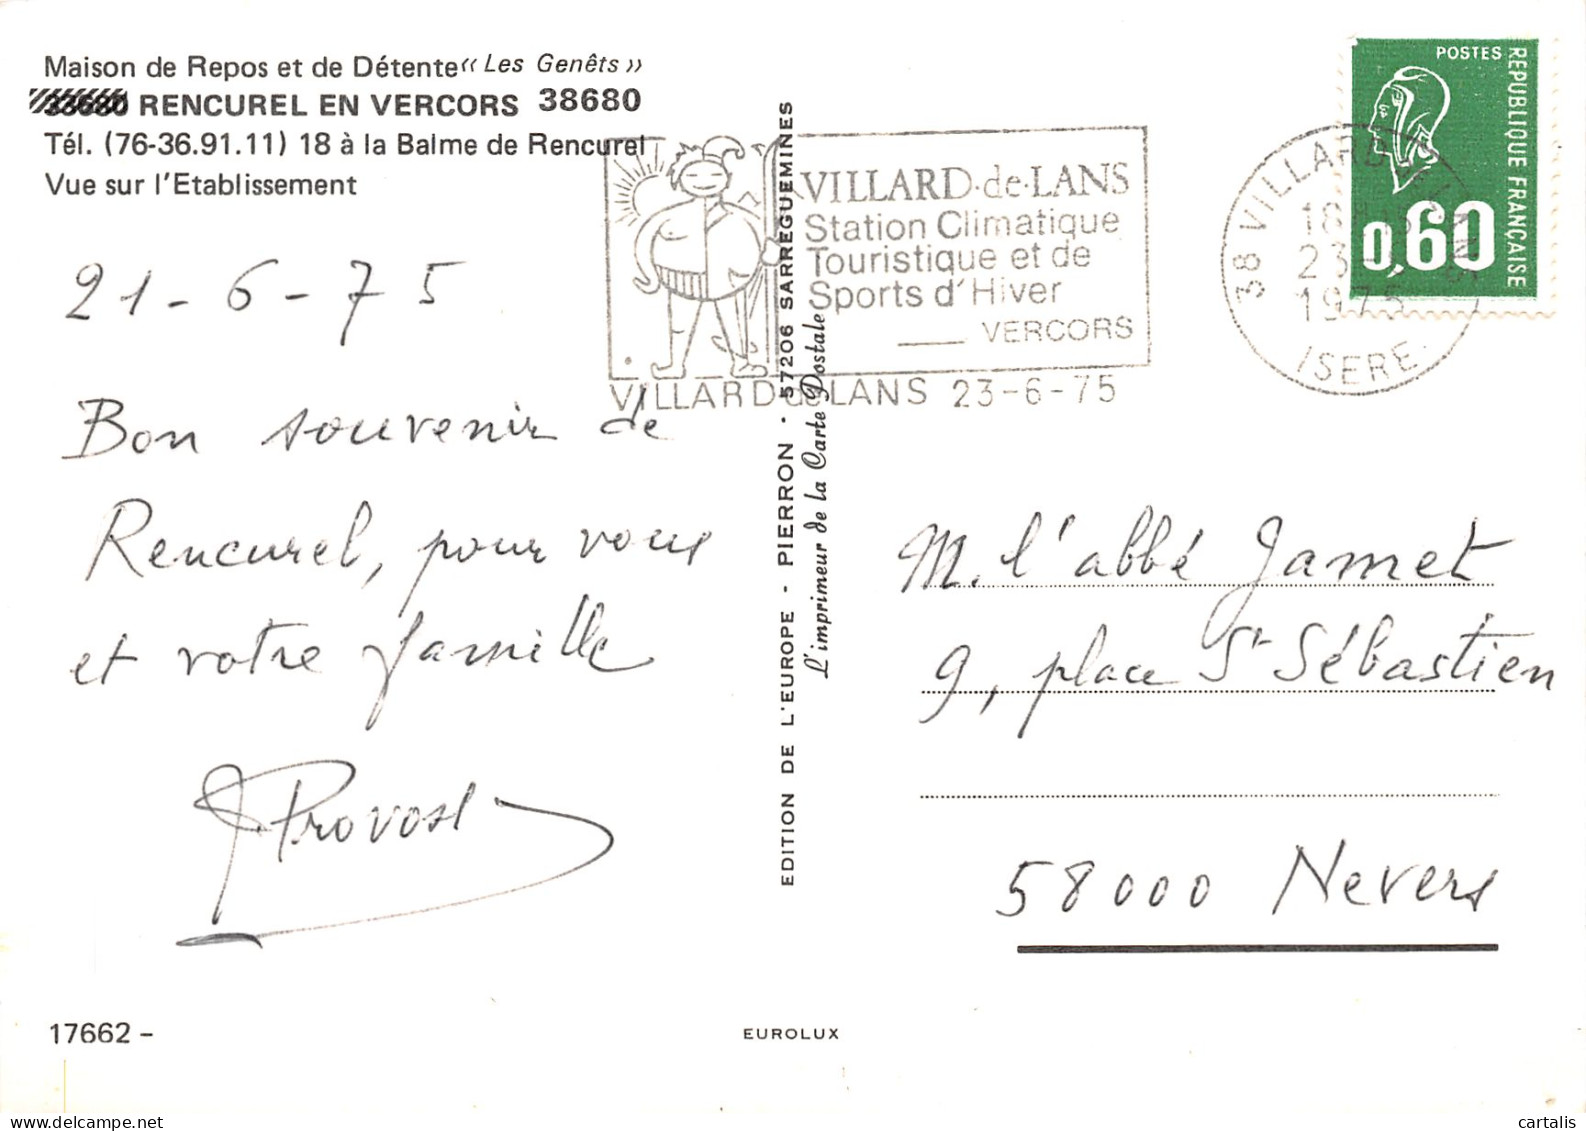 Maison de Repos et de Détente « Les Genêts »
33680 RENCUREL EN VERCORS 38680
Tél. (76-36.91.11) 18 à la Balme de Rencurel
Vue sur l'Etablissement
21-6-75
Bon souvenir de
Rencurel, pour vous
et votre famille
Provost
17662 -
VILLARD·de·LANS
Station Climatique
Touristique et de
Sports d'Hiver
VERCORS
VILLARD de LANS 23-6-75
EDITION DE L'EUROPE - PIERRON - 57206 SARREGUEMINES
L'imprimeur de la Carte Postale
EUROLUX
38 VILLARD de LANS
18H
23-
1975
ISERE
POSTES
REPUBLIQUE FRANÇAISE
0,60
M. l'abbé Jamet
9, place St Sébastien
58000 Nevers
cartalis